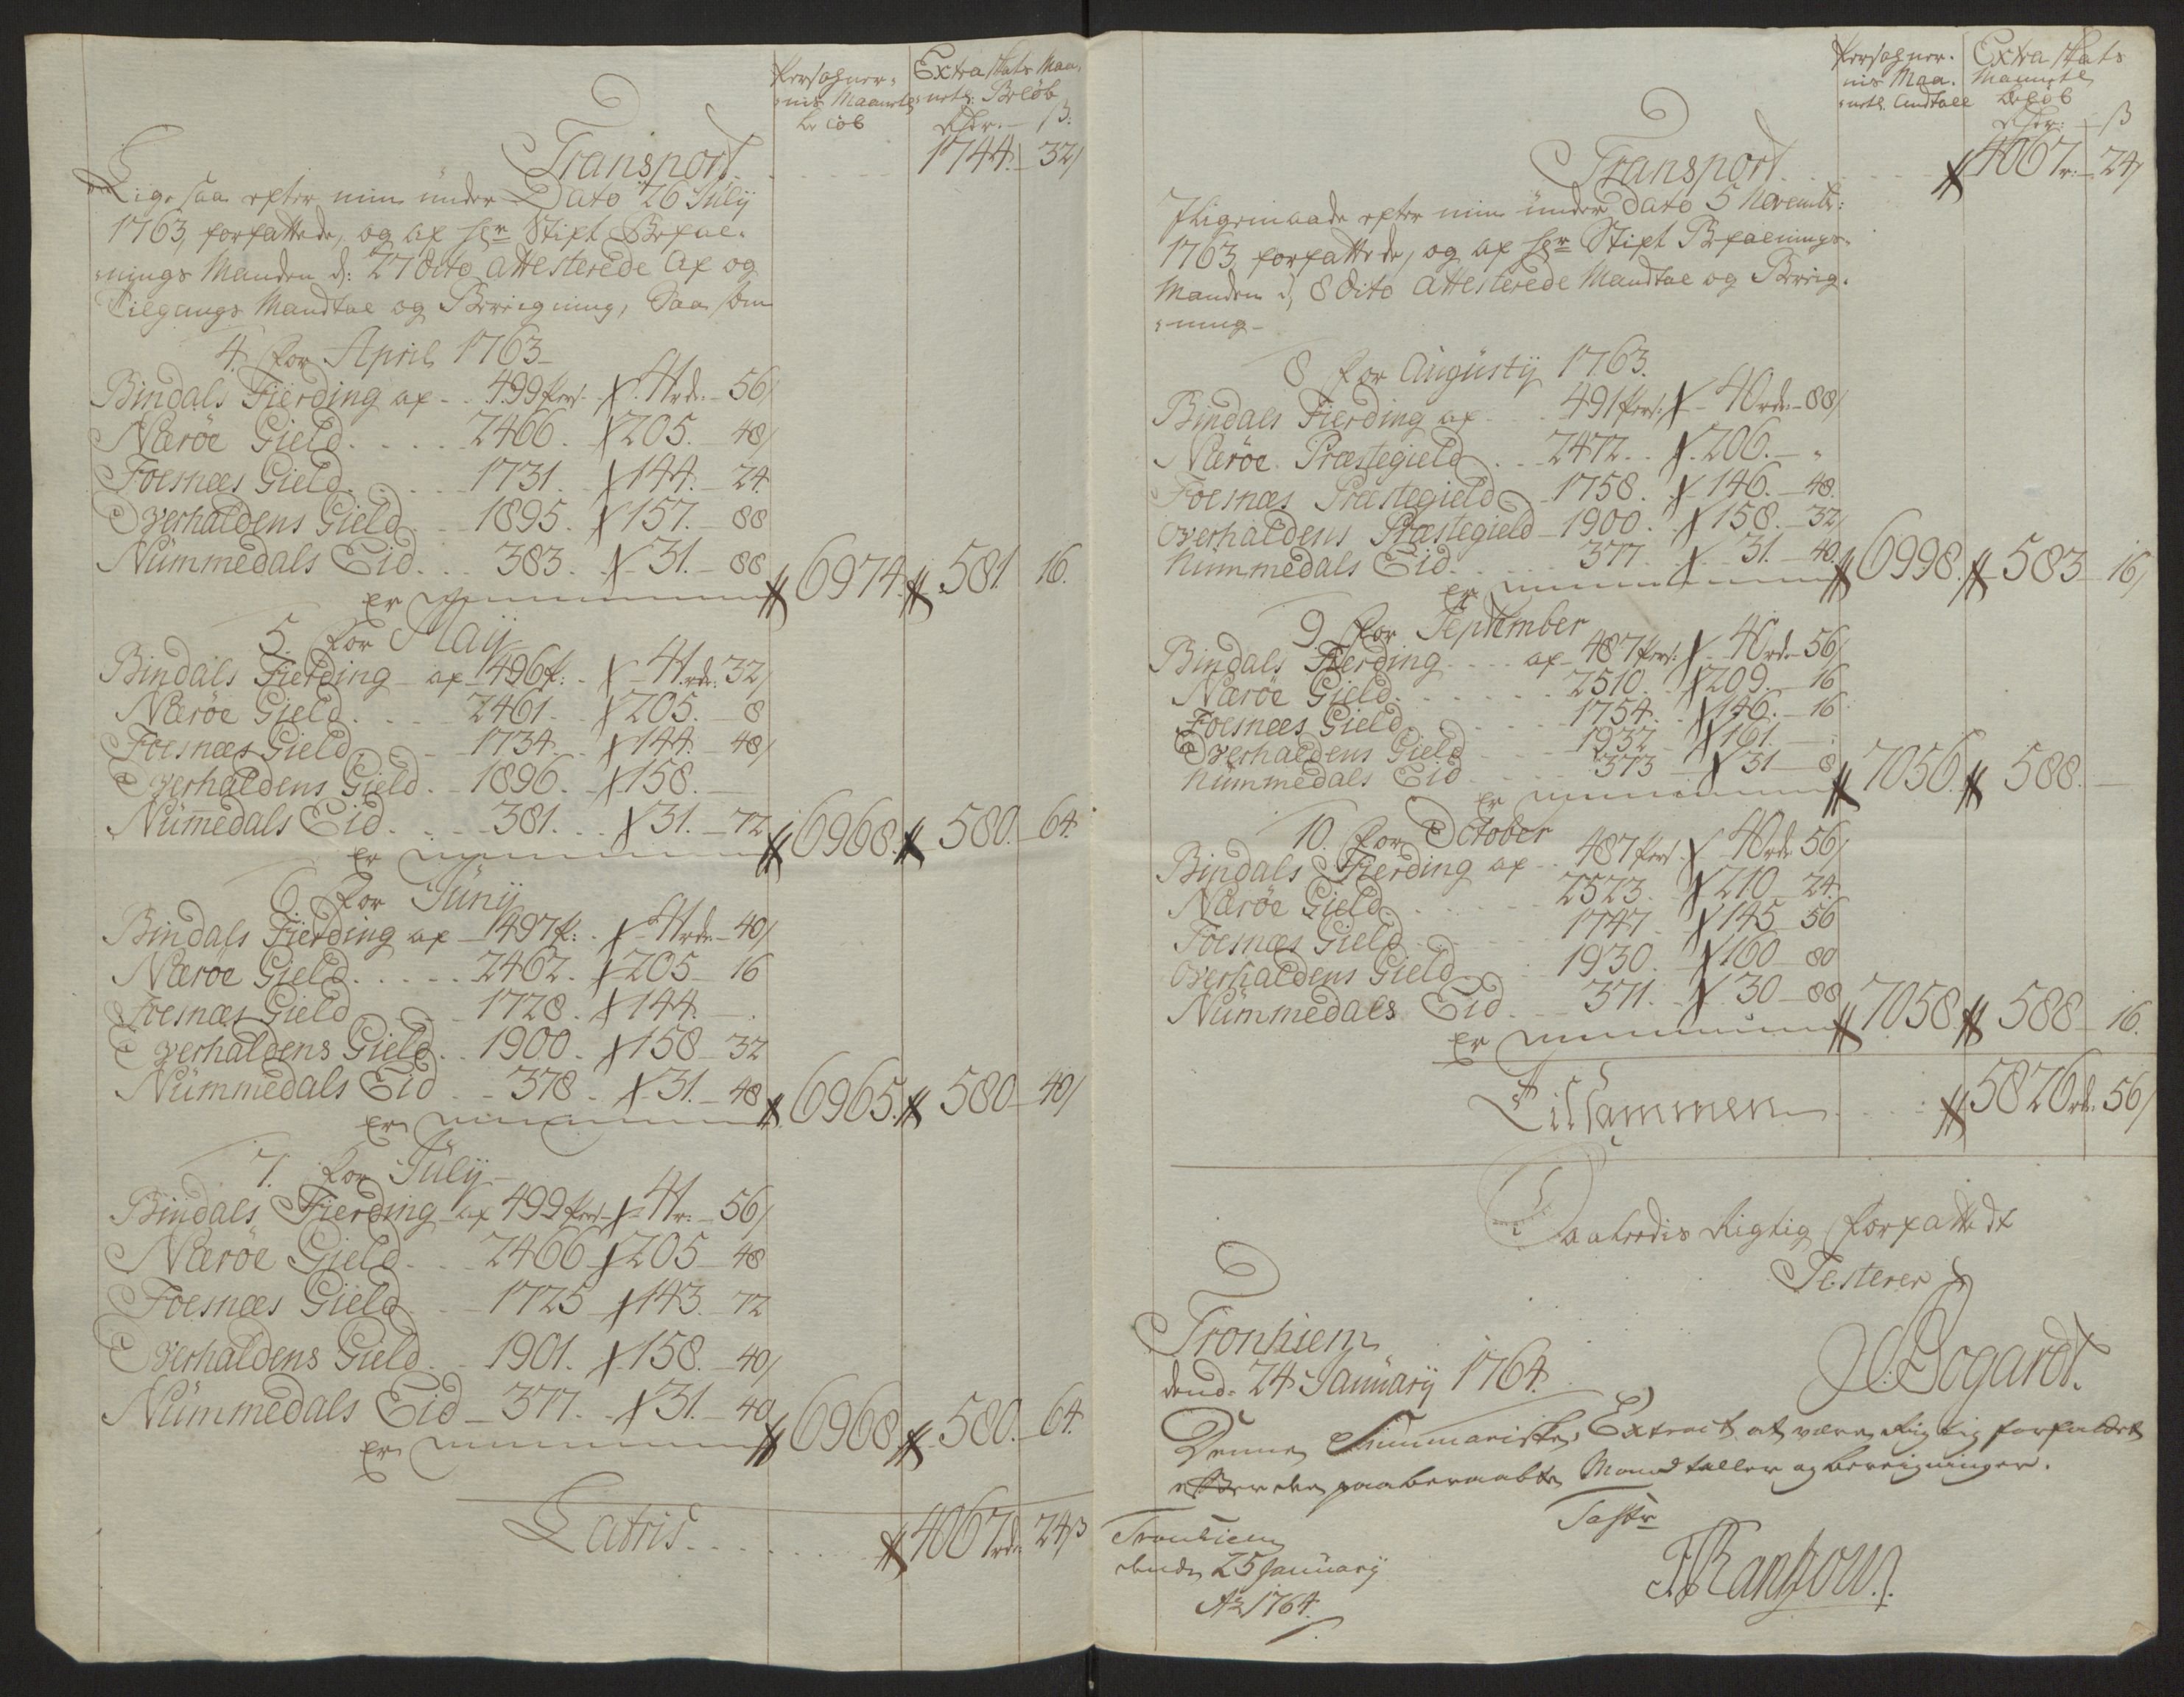 Persohner-
nis Maanetl:
beløb
Extra skats Maa-
netl: Beløb
Rdr. ß:
Transport . . . 1744. 32/
Lige saa efter min under Dato 26 Julij
1763, forfattede, og af Hr Stift Befal-
nings Manden d: 27 dito attesterede Af og
Tilgangs Mandtal og Beregning, Saa som
4. for April 1763
Bindals Fierding af - - 499 pers: 41 rdr. 56/
Nærøe Gield . . . . 2466. 205. 48/
Foesnæs Gield . . . 1731. 144. 24.
Overhaldens Gield . . 1895. 157. 88
Nümmedals Eid . . . 383. 31. 88
er 6974. 581. 16.
5. for Maij
Bindals Fierding af 496 p: 41 rdr. 32/
Nærøe Gield . . . . 2461. 205. 8
Foesnæs Gield . . 1734. 144. 48/
Overhaldens Gield . 1896. 158. —
Nümedals Eid . . . 381. 31. 72
er 6968. 580. 64.
6 for Junij
Bindals Fierding af 497 p: 41 rdr. 40/
Nærøe Gield . . . . 2462. 205 16
Foesnæs Gield . . 1728. 144. —
Overhaldens Gield . . 1900. 158 32
Nümmedals Eid . . 378. 31. 48
er 6965. 580 40/
7. for Julij
Bindals Fierding af 499 pers 41 r: 56/
Nærøe Gield . . . 2466 205 48
Foesnæs Gield . . 1725 143. 72
Overhaldens Gield . . 1901. 158. 40/
Nümmedals Eid 377. 31. 40
er 6968. 580. 64.
Latris . . . . 4067 rdr. 24 ß
Persohner-
nis Maa-
netl. Andtall
Extra skats
Maanetl
beløb
Rdr: ß
Transport . . . 4067 r: 24/
Iligemaade efter min under Dato 5 Novembr:
1763 forfattede, og af Hr Stift Befalnings
Manden d, 8 dito attesterede Mandtal og Bereg-
ning
8 for Augüstij 1763.
Bindals Fierding af . . 491 pers: 40 rdr. 88/
Nærøe Præstegield . . 2472. 206. "
Foesnæs Præstegield 1758. 146. 48.
Overhaldens Præstegield 1900. 158. 32/
Nümmedals Eid . . . 377. 31. 40.
er 6998. 583 16/
9 for September
Bindals Fierding . . . af 487 pers: 40 rdr 56/
Nærøe Gield . . . . 2510. 209. 16
Foesnæs Gield . . . 1754. 146. 16
Overhaldens Gield . . 1932 161. —
Nümmedals Eid . . . 373 31 8
er 7056. 588. —
10. for October
Bindals Fierding af . . 487 pers. 40 rdr 56/
Nærøe Gield . . . . 2523. 210 24.
Foesnæs Gield . . . 1747 145 56
Overhaldens Gield . . 1930. 160 80
Nümmedals Eid . . 371. 30 88
er 7058. 588 16.
Tilsammen . . . 5826 rd. 56/
Saaledis Rigtig forfattedt
Testerer
Tronhiem
dend. 24 Januarij 1764.
Bogardt.
Denne Summariske Extract at være Rigtig forfattet
efter de paaberaabte Mandtaller og beregninger.
Test
Tronhiem
dend 25 Januarij
Ao 1764.
Rantzow.